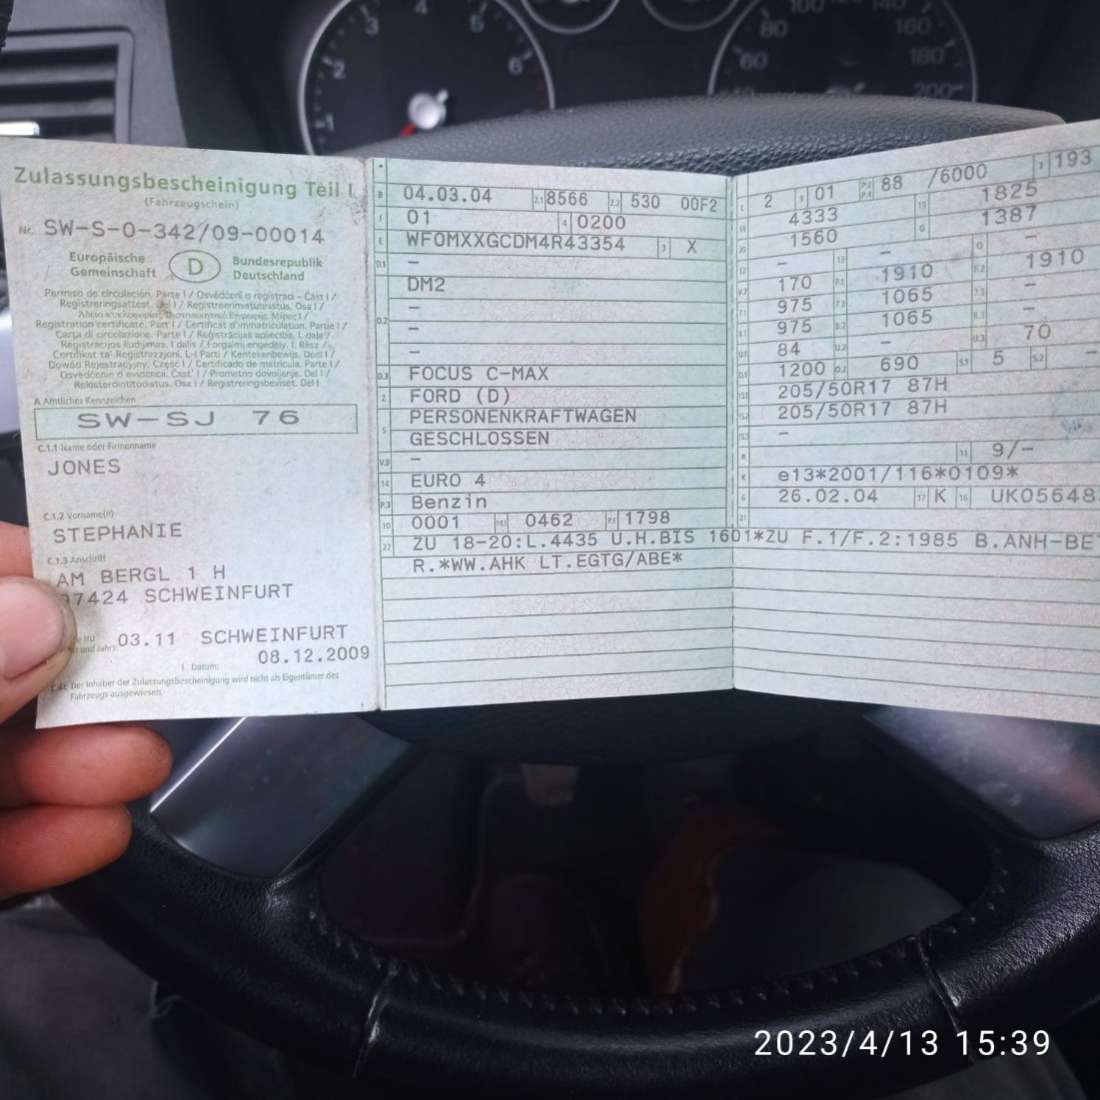 Zulassungsbescheinigung Teil I
(Fahrzeugschein)
Nr. SW-S-0-342/09-00014
Europäische Gemeinschaft
D
Bundesrepublik Deutschland
Permiso de circulación. Parte I / Osvědčení o registraci - Část I /
Registreringsattest. Del I / Registreerimistunnistus. Osa I /
Registration certificate. Part I / Certificat d'immatriculation. Partie I /
Carta di circolazione. Parte I / Reģistrācijas apliecība. I. daļa /
Registracijos liudijimas. I dalis / Forgalmi engedély. I. Rész /
Ċertifikat ta' Reġistrazzjoni. L-I Parti / Kentekenbewijs. Deel I /
Dowód Rejestracyjny. Część I / Certificado de matrícula. Parte I /
Osvedčenie o evidencii. Časť I / Prometno dovoljenje. Del I /
Rekisteröintitodistus. Osa I / Registreringsbeviset. Del I
A Amtliches Kennzeichen
SW-SJ 76
C.1.1 Name oder Firmenname
JONES
C.1.2 Vorname(n)
STEPHANIE
C.1.3 Anschrift
AM BERGL 1 H
97424 SCHWEINFURT
HU
und Jahr: 03.11 SCHWEINFURT
I Datum: 08.12.2009
Der Inhaber der Zulassungsbescheinigung wird nicht als Eigentümer des
Fahrzeugs ausgewiesen.
B 04.03.04 2.1 8566 2.2 530 00F2
J 01 4 0200
E WF0MXXGCDM4R43354 3 X
D.1 –
DM2
–
D.2 –
–
D.3 FOCUS C-MAX
2 FORD (D)
5 PERSONENKRAFTWAGEN
GESCHLOSSEN
V.9 –
14 EURO 4
P.3 Benzin
10 0001 14.1 0462 P.1 1798
22 ZU 18-20:L.4435 U.H.BIS 1601*ZU F.1/F.2:1985 B.ANH-BE
R.*WW.AHK LT.EGTG/ABE*
L 2 9 01 P.2 P.4 88 /6000 T 193
18 4333 19 1825
20 1560 G 1387
12 – 13 – Q –
V.7 170 F.1 1910 F.2 1910
7.1 975 7.2 1065 7.3 –
8.1 975 8.2 1065 8.3 –
U.1 84 U.2 – U.3 70
O.1 1200 O.2 690 S.1 5 S.2 –
15.1 205/50R17 87H
15.2 205/50R17 87H
15.3 –
R 11 9/–
K e13*2001/116*0109*
6 26.02.04 17 K 16 UK05648
21
1
2
3
4
5
6
60
80
100
140
160
180
200
2023/4/13 15:39